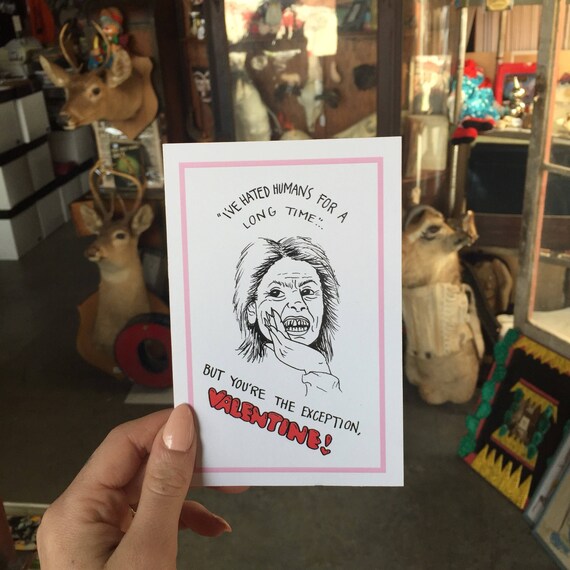 "I'VE HATED HUMANS FOR A
LONG TIME"...
BUT YOU'RE THE EXCEPTION,
VALENTINE!